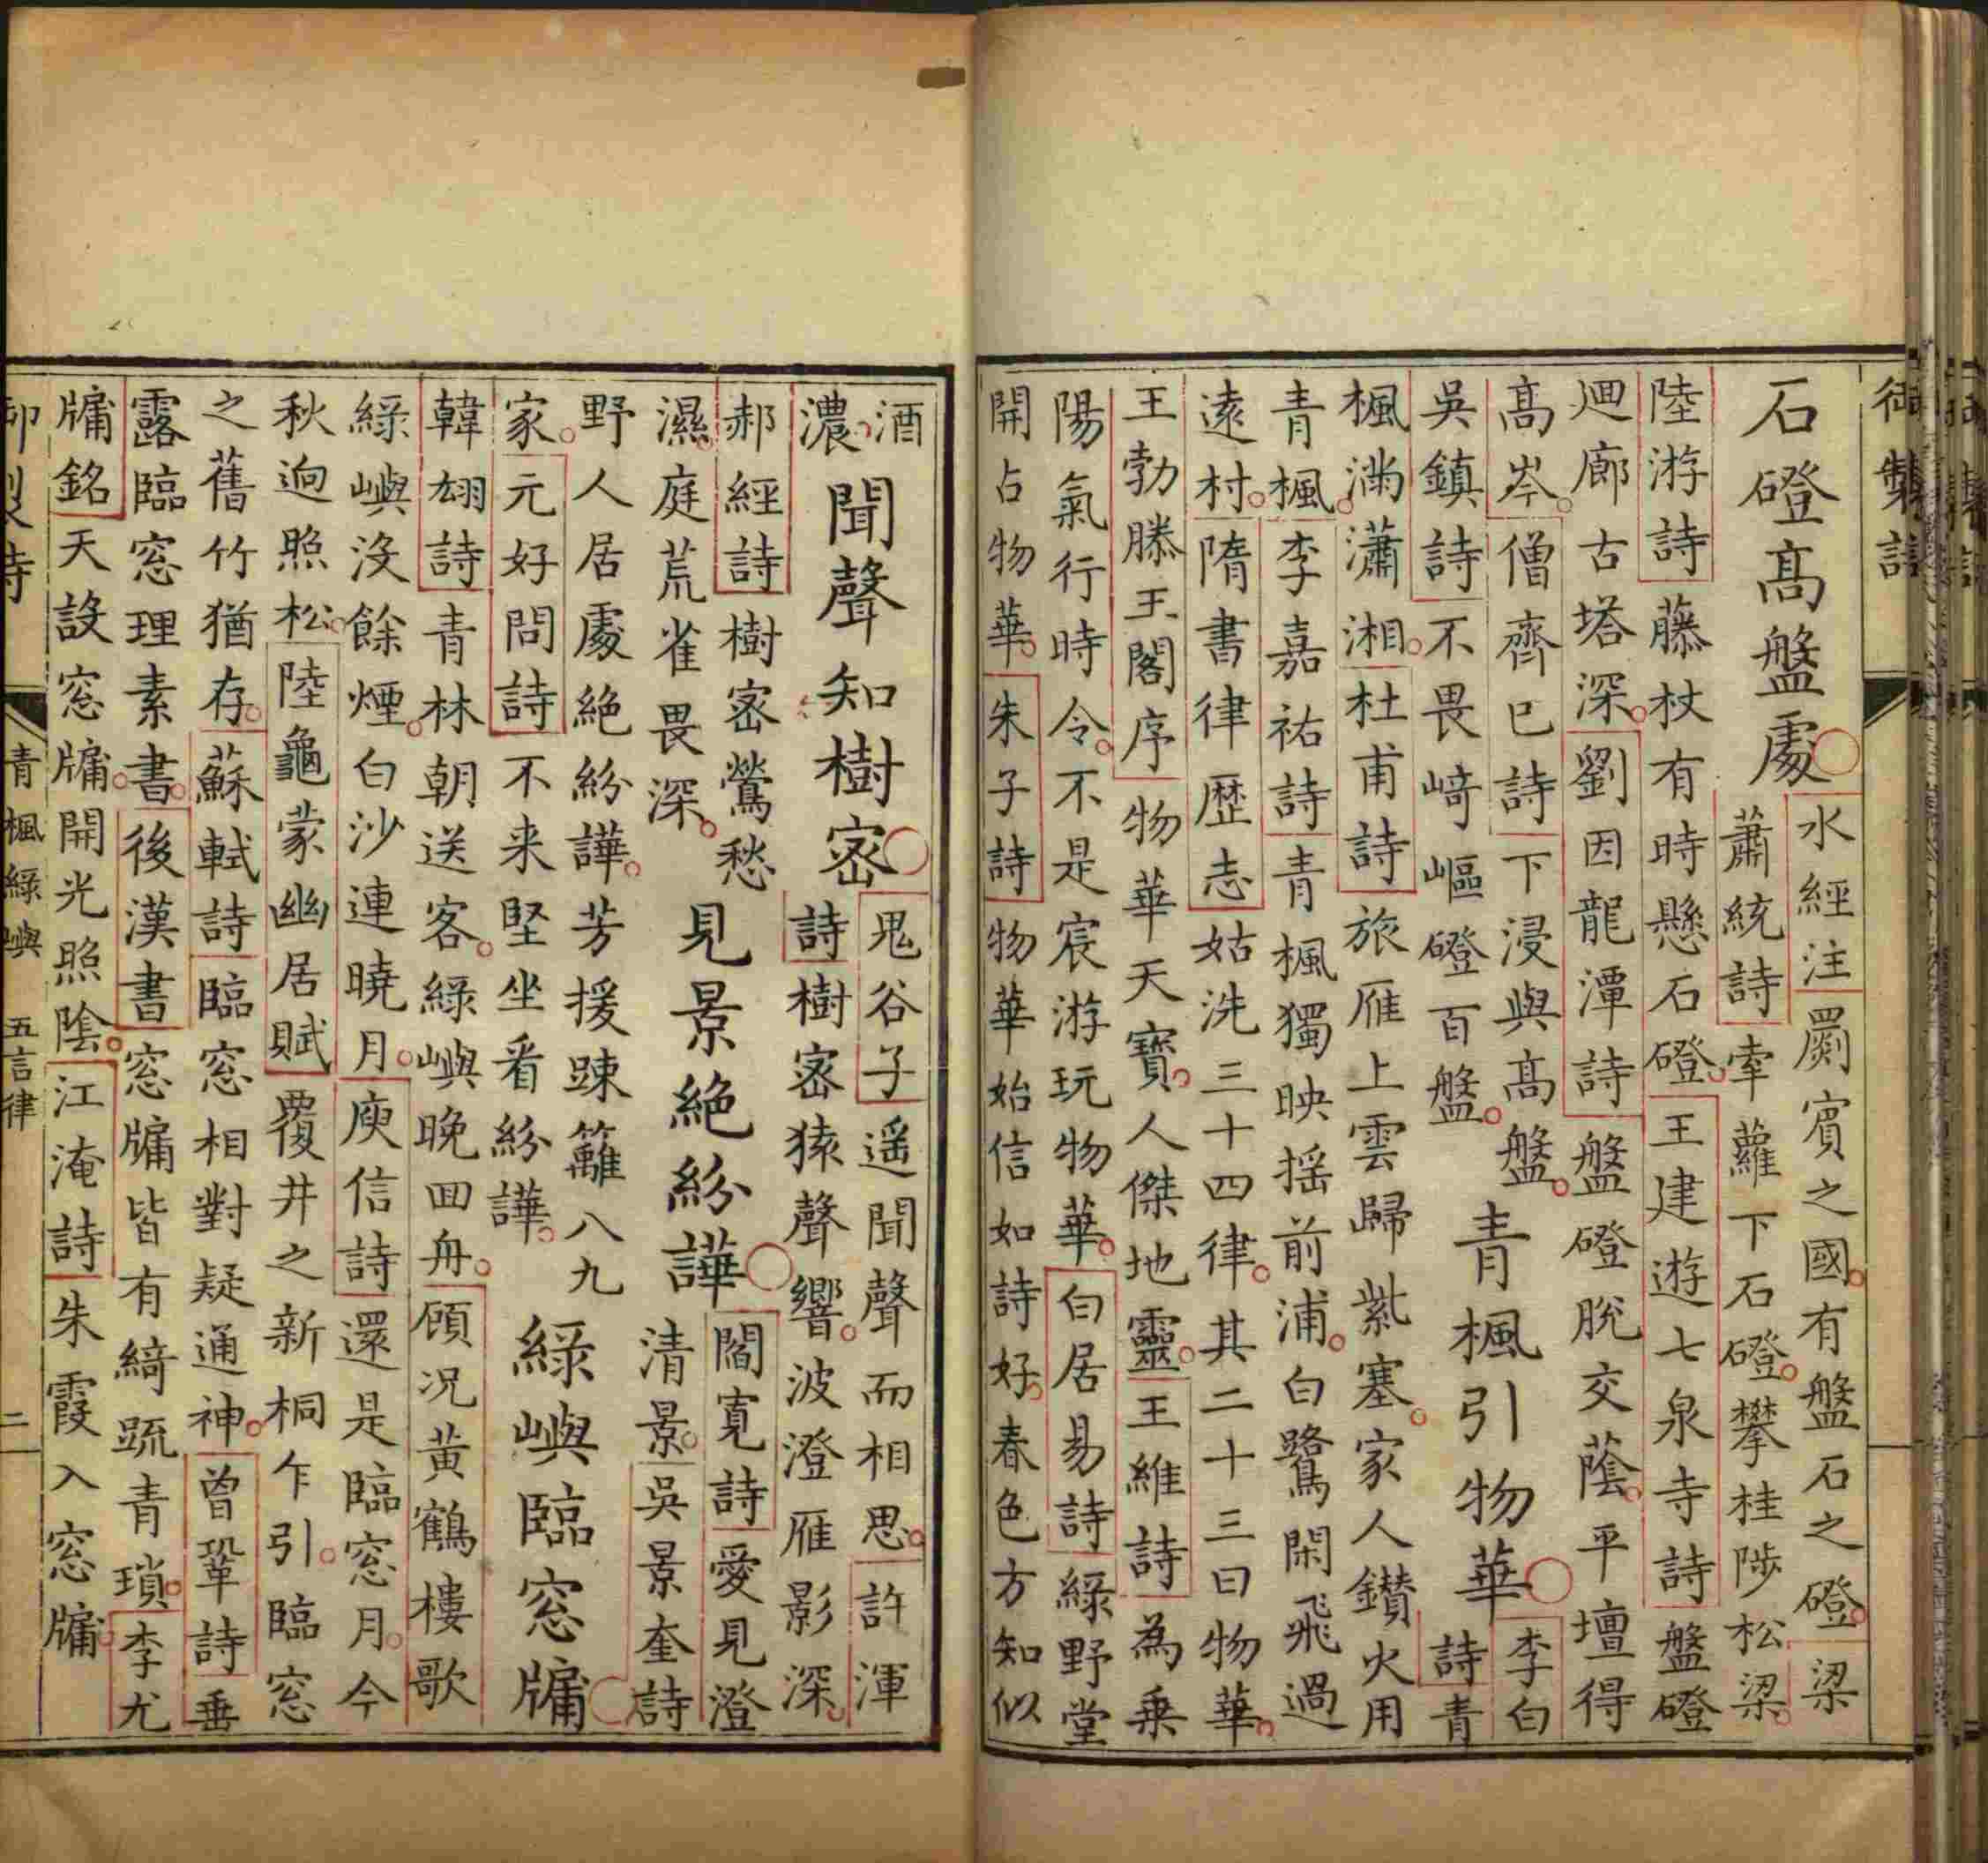 御製詩
石磴高盤處
水經注罽賓之國有盤石之磴梁
蕭統詩牽蘿下石磴攀桂陟松梁
陸游詩藤杖有時懸石磴王建遊七泉寺詩盤磴
迴廊古塔深劉因龍潭詩盤磴脫交蔭平壇得
高岑僧齊巳詩下浸與高盤
吳鎮詩不畏崎嶇磴百盤
青楓引物華
李白
詩青
楓滿瀟湘杜甫詩旅雁上雲歸紫塞家人鑽火用
青楓李嘉祐詩青楓獨映揺前浦白鷺閑飛過
遠村隋書律歷志姑洗三十四律其二十三曰物華
王勃滕王閣序物華天寶人傑地靈王維詩為乗
陽氣行時令不是宸游玩物華白居易詩綠野堂
開占物華朱子詩物華始信如詩好春色方知似
酒
濃
聞聲知樹密
鬼谷子遥聞聲而相思許渾
詩樹密猿聲響波澄雁影深
郝經詩樹密鶯愁
濕庭荒雀畏深
見景絕紛譁
閻寬詩愛見澄
清景吳景奎詩
野人居處絕紛譁芳援踈籬八九
家元好問詩不来堅坐看紛譁
綠嶼臨窓牖
韓翃詩青林朝送客綠嶼晚回舟顧况黃鶴樓歌
綠嶼没餘煙白沙連曉月庾信詩還是臨窓月今
秋逈照松陸龜蒙幽居賦覆井之新桐乍引臨窓
之舊竹猶存蘇軾詩臨窓相對疑通神曾鞏詩垂
露臨窓理素書後漢書窓牖皆有綺疏青瑣李尤
牖銘天設窓牖開光照陰江淹詩朱霞入窓牖
御製詩
青楓綠嶼 五言律
二